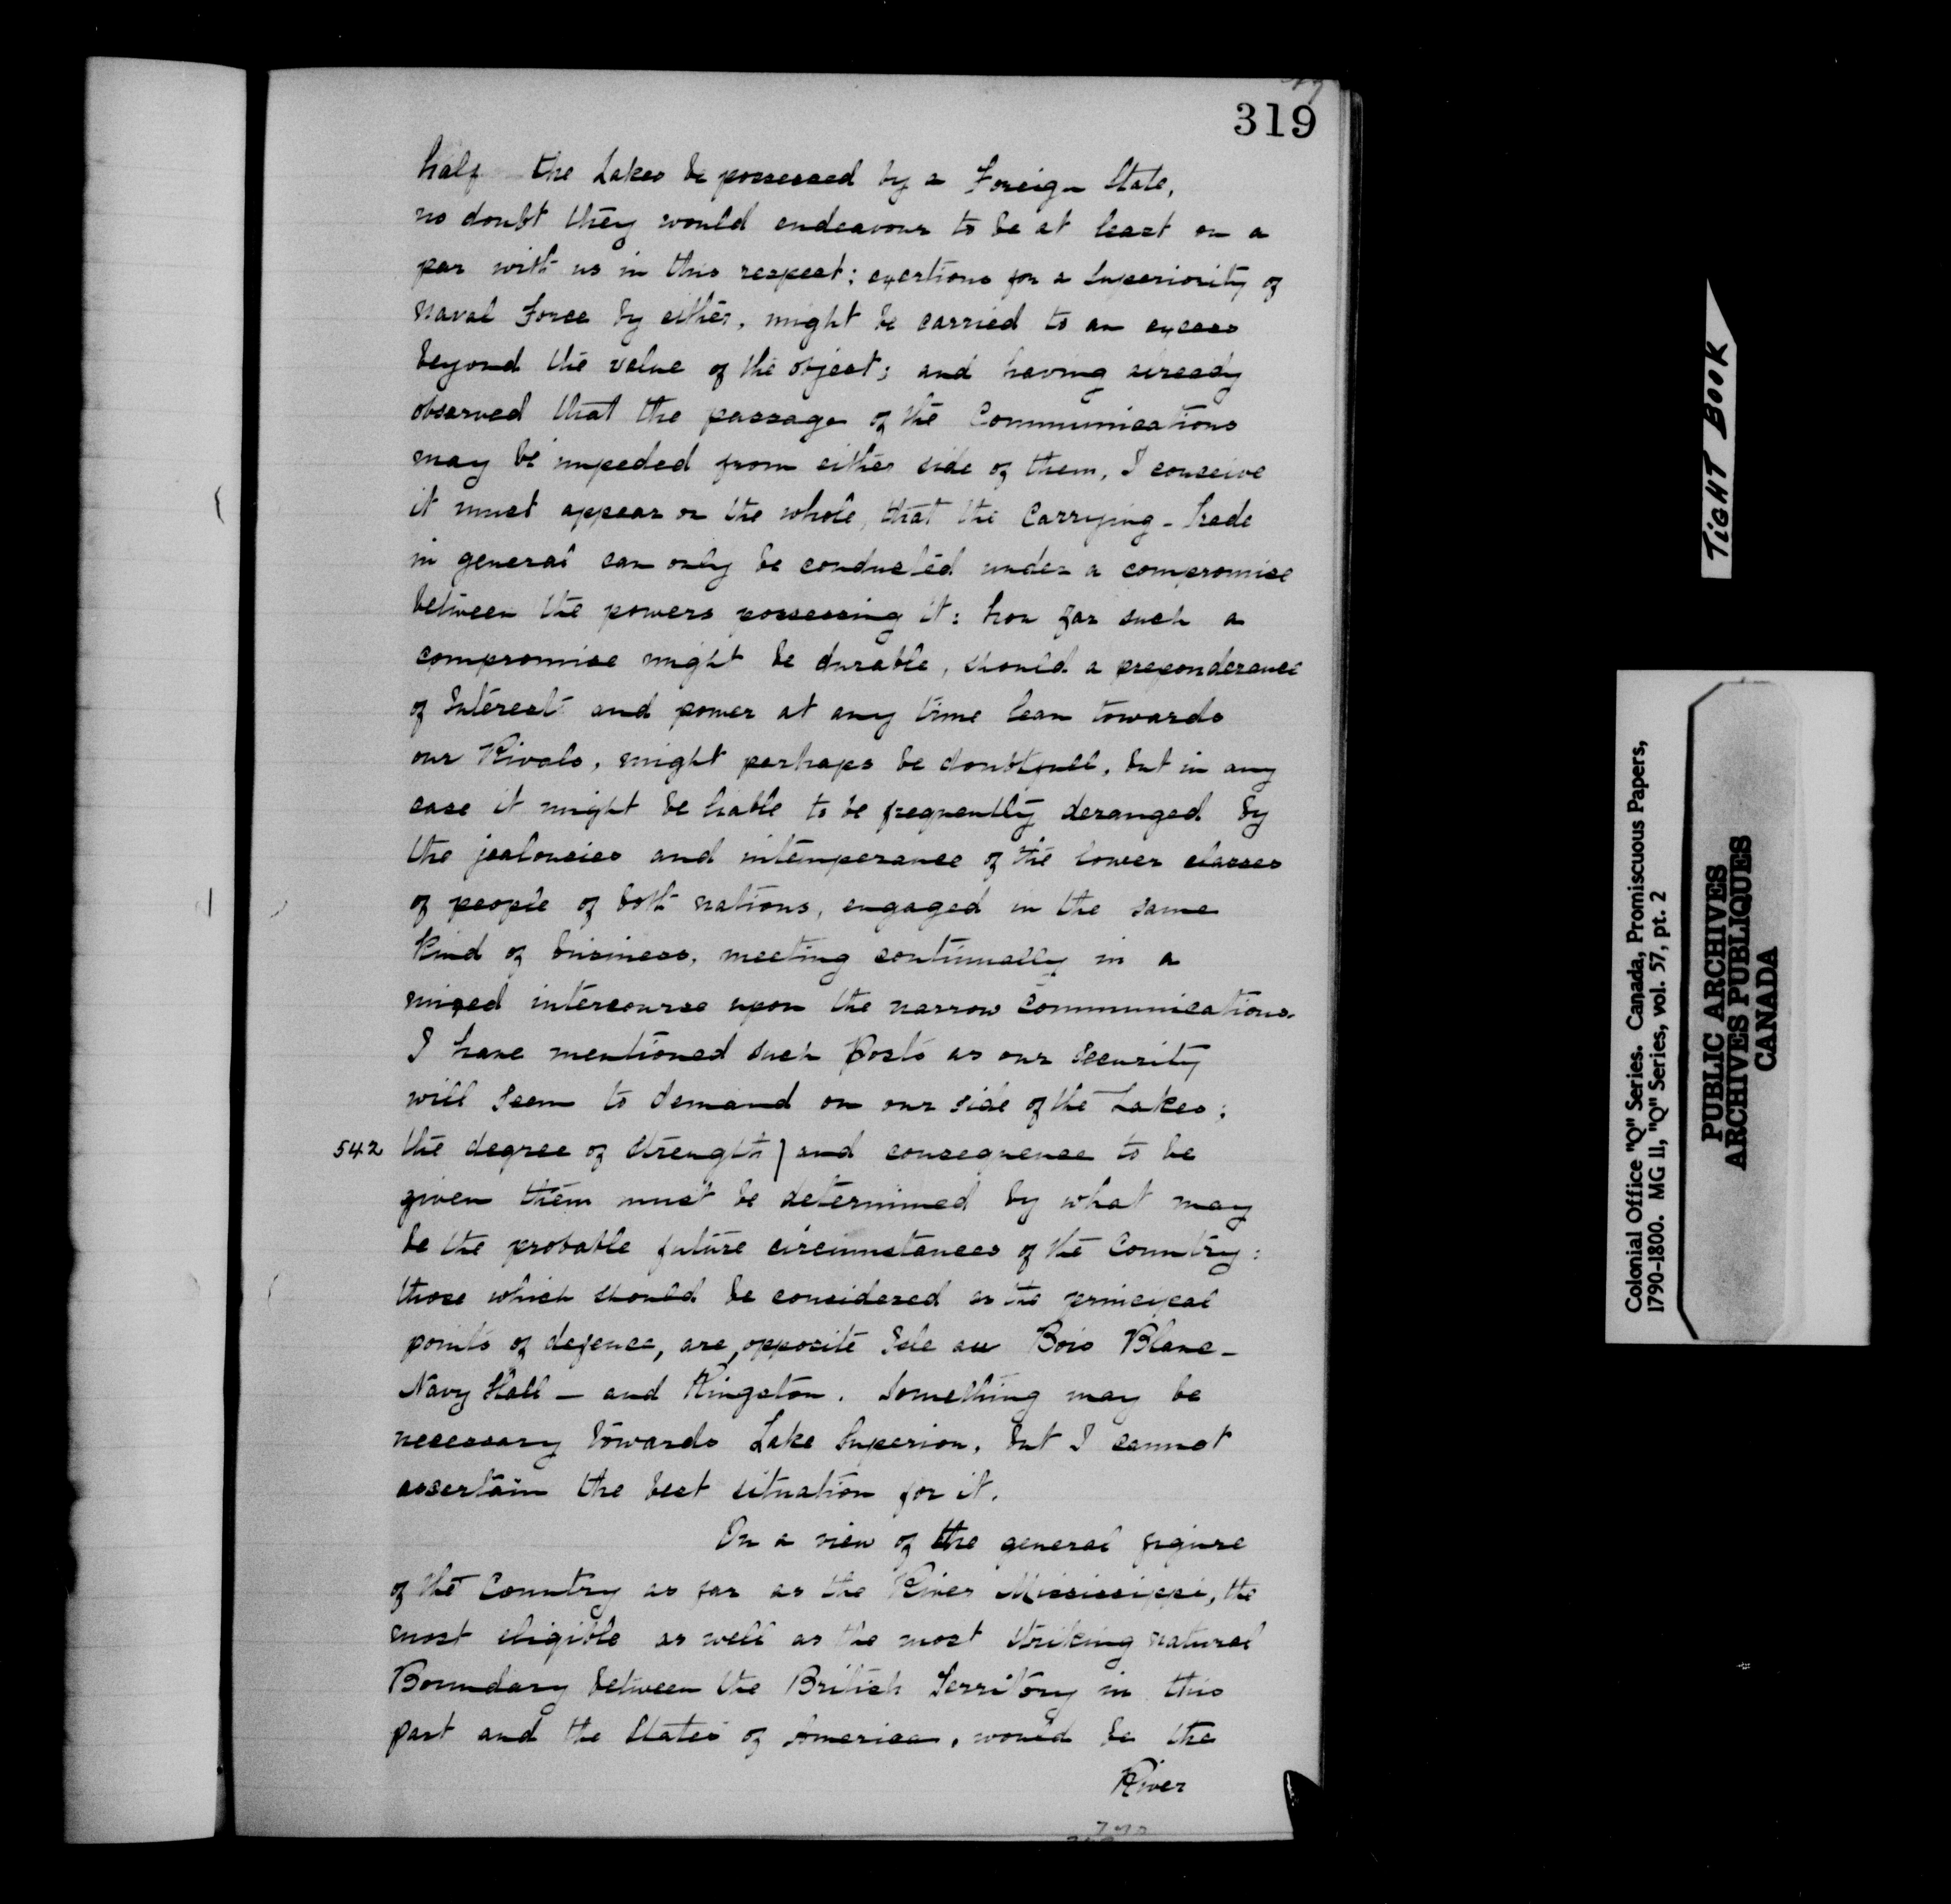 319
half the Lakes be possessed by a Foreign State,
no doubt they would endeavour to be at least on a
par with us in this respect; exertions for a Superiority of
Naval Force by either, might be carried to an excess
beyond the value of the object; and having already
observed that the passage of the Communications
may be impeded from either side of them, I conceive
it must appear on the whole, that the Carrying-Trade
in general can only be conducted under a compromise
between the powers possessing it: how far such a
compromise might be durable, should a preponderance
of Interest and power at any time lean towards
our Rivals, might perhaps be doubtfull, but in any
case it might be liable to be frequently deranged by
the jealousies and intemperance of the lower classes
of people of both nations, engaged in the same
Kind of business, meeting continually in a
mixed intercourse upon the narrow Communications.
I have mentioned such Posts as our Security
will seem to demand on our side of the Lakes;
542 the degree of strength) and consequence to be
given them must be determined by what may
be the probable future circumstances of the Country:
those which should be considered as the principal
points of defence, are, opposite Isle au Bois Blanc -
Navy Hall - and Kingston. Something may be
necessary towards Lake Superior, but I cannot
ascertain the best situation for it.
On a view of the general figure
of the Country as far as the River Mississippi, the
most eligible as well as the most striking natural
Boundary between the British Territory in this
part and the States of America, would be the
River
TIGHT BOOK
Colonial Office "Q" Series. Canada, Promiscuous Papers,
1790-1800. MG 11, "Q" Series, vol. 57, pt. 2
PUBLIC ARCHIVES
ARCHIVES PUBLIQUES
CANADA